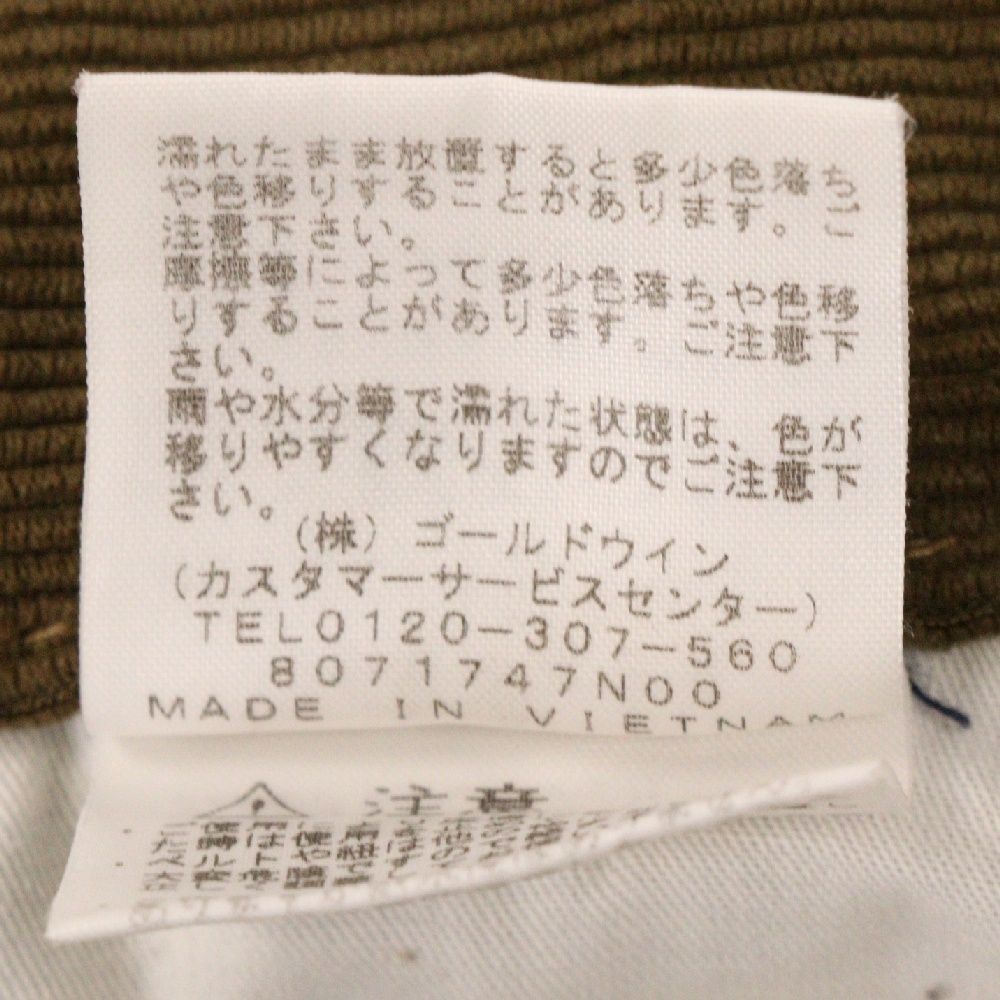 濡れたまま放置すると多少色落ち
や色移りすることがあります。ご
注意下さい。
摩擦等によって多少色落ちや色移
りすることがあります。ご注意下
さい。
雨や水分等で濡れた状態は、色が
移りやすくなりますのでご注意下
さい。
(株)ゴールドウイン
(カスタマーサービスセンター)
TEL0120-307-560
8071747N00
MADE IN VIETNAM
注意